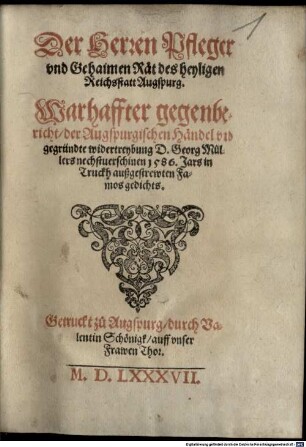 1
Der Herren Pfleger
vnd Gehaimen Rät des heyligen
Reichsstatt Augspurg.
Warhaffter gegenbe-
richt/ der Augspurgischen Händel vñ
gegründte widertreybung D. Georg Mül-
lers nechstuerschinen 1586. Jars in
Truckh außgestrewten Fa-
mos gedichts.
Getruckt zů Augspurg/ durch Va-
lentin Schönigk/ auff vnser
Frawen Thor.
M. D. LXXXVII.